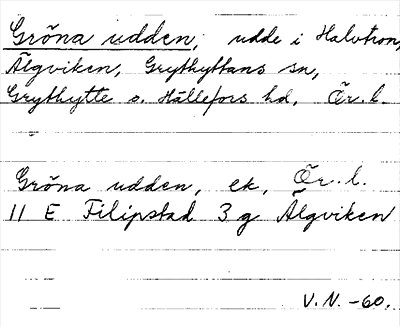 Gröna udden, udde i Halvtron,
Älgviken, Grythyttans sn,
Grythytte o. Hällefors hd, Ör. l.
Gröna udden, ek, Ör. l.
11 E Filipstad 3 g Älgviken
V. N. -60.